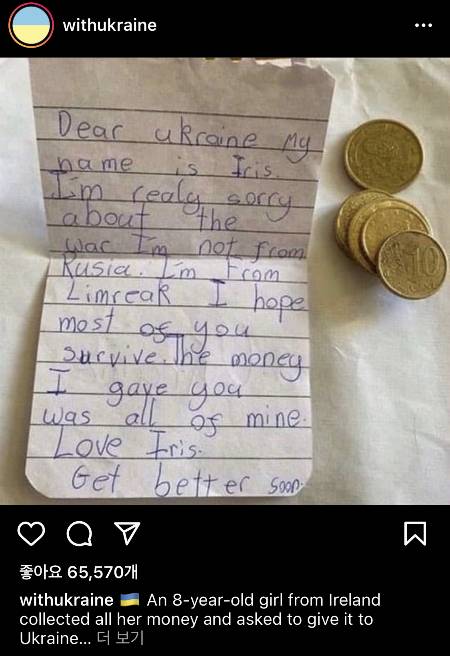 withukraine
Dear ukraine My
name is Iris.
I'm realy sorry
about the
war I'm not from
Rusia. I'm From
Limreak I hope
most of you
survive. The money
I gave you
was all of mine.
Love Iris.
Get better soon.
10
좋아요 65,570개
withukraine 🇺🇦 An 8-year-old girl from Ireland
collected all her money and asked to give it to
Ukraine... 더 보기